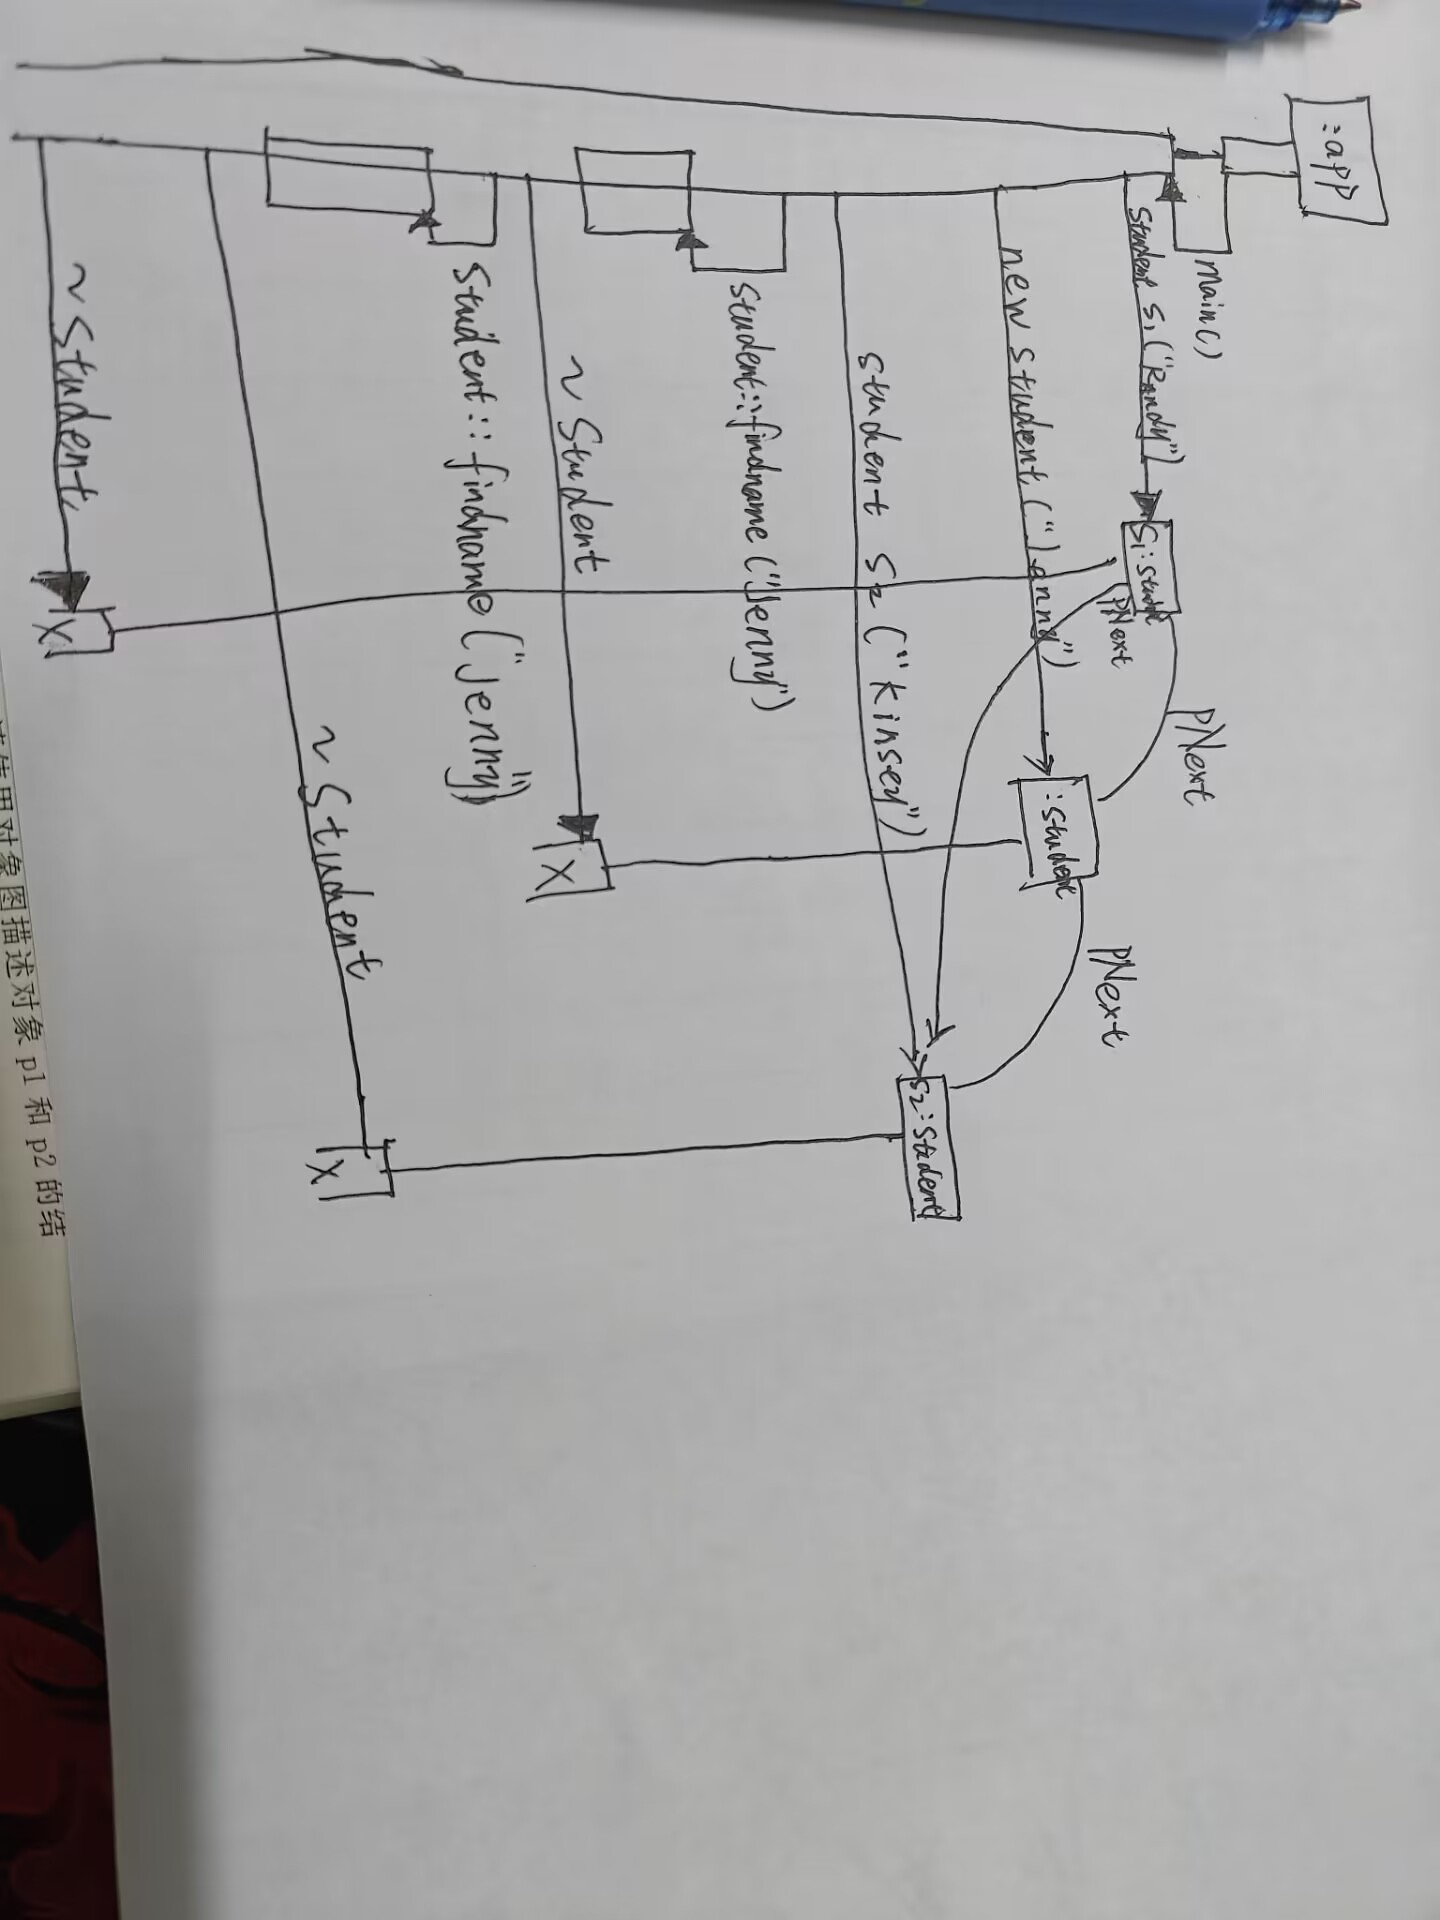 :app
main()
Student S1("Randy")
S1:Stude
PNext
PNext
new Student("Jenny")
:Student
PNext
Student S2("Kinsey")
S2:Student
Student::findname("Jenny")
~Student
X
Student::findname("Jenny")
~Student
X
~Student
X
使用对象图描述对象 p1 和 p2 的结